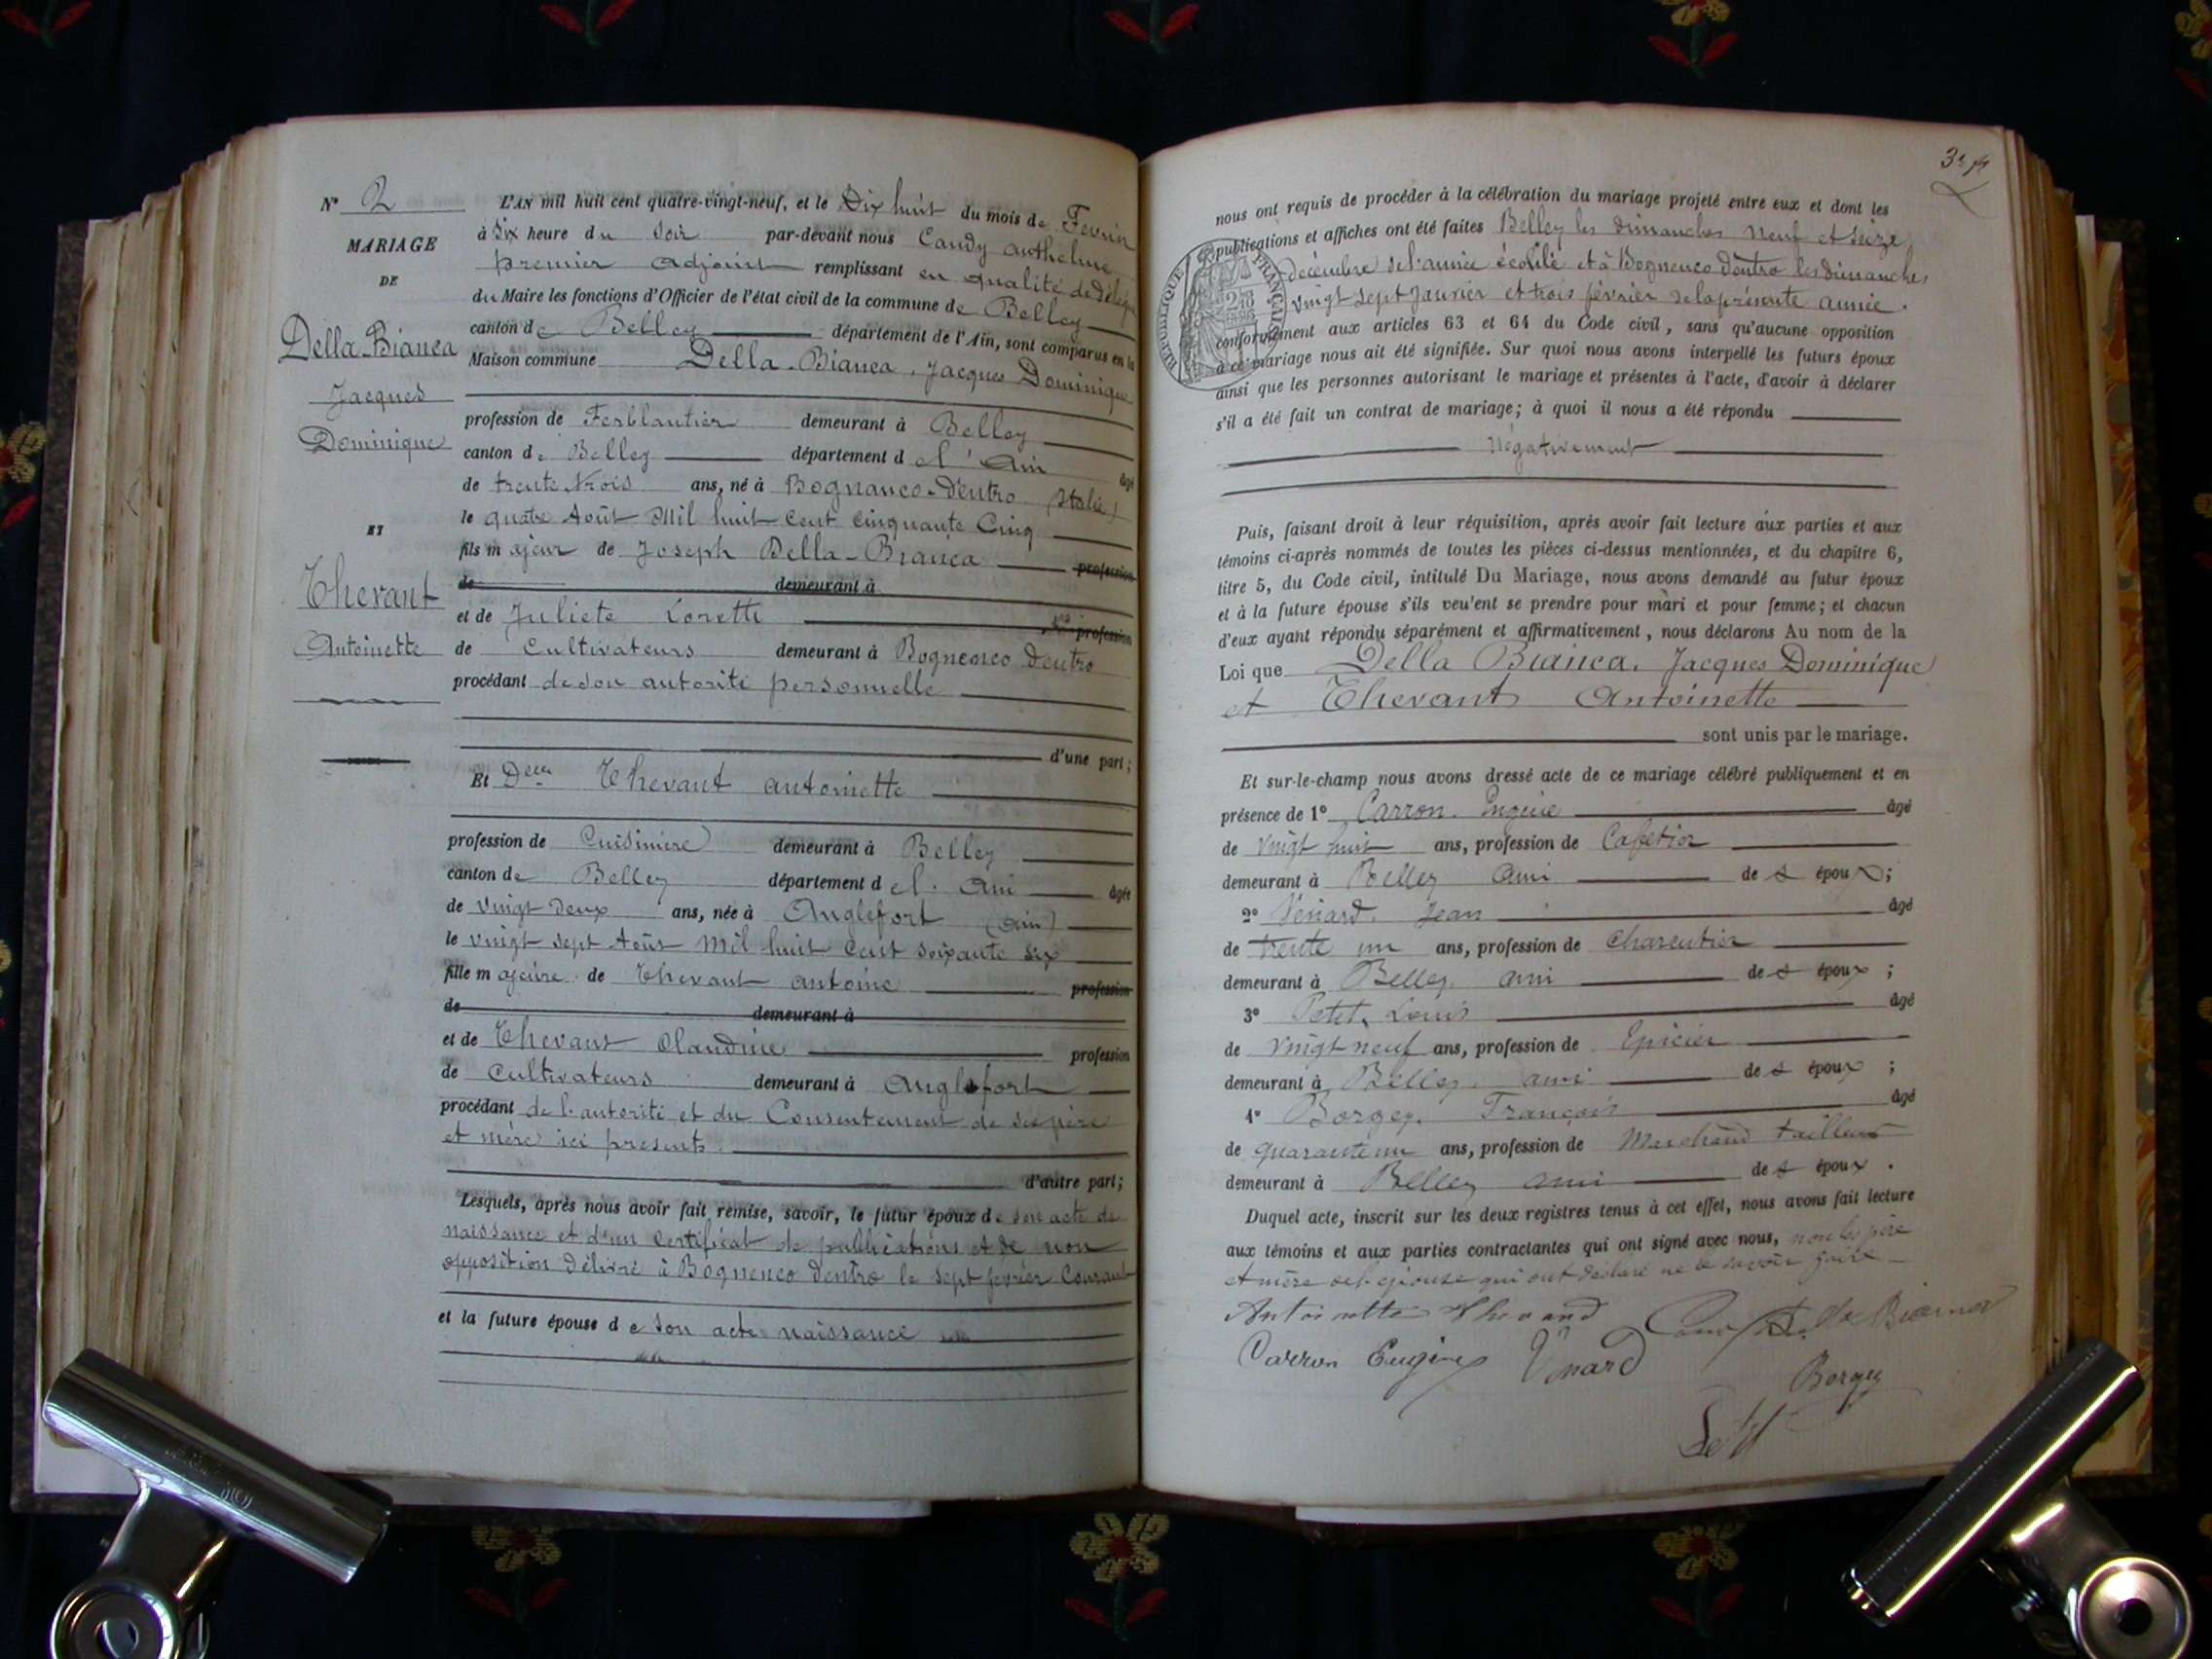 N° 2
MARIAGE
DE
Della-Bianca
Jacques
Dominique
ET
Thevant
Antoinette
L'AN mil huit cent quatre-vingt-neuf, et le Dix huit du mois de Fevrier
à Six heure du Soir par-devant nous Candy anthelme
premier adjoint remplissant en qualité de délégué
du Maire les fonctions d'Officier de l'état civil de la commune de Belley
canton de Belley département de l'Ain, sont comparus en la
Maison commune Della-Bianca, Jacques Dominique
profession de Ferblantier demeurant à Belley
canton de Belley département de l'Ain âgé
de trente trois ans, né à Bognanco-Dentro (Italie)
le quatre Août Mil huit Cent Cinquante Cinq
fils majeur de Joseph Della-Bianca profession
de demeurant à
et de Juliete Loretti profession
de Cultivateurs demeurant à Bognenco Dentro
procédant de son autorité personnelle
d'une part;
Et Delle Thevant antoinette
profession de Cuisinière demeurant à Belley
canton de Belley département de l'Ain âgée
de vingt Deux ans, née à Anglefort (Ain)
le vingt sept Août Mil huit Cent soixante six
fille majeure de Thevant antoine profession
de demeurant à
et de Thevant Claudine profession
de Cultivateurs demeurant à Anglefort
procédant de l'autorité et du Consentement de ses père
et mère ici présents
d'autre part;
Lesquels, après nous avoir fait remise, savoir, le futur époux de son acte de
naissance et d'un Certificat de publications et de non
opposition Délivré à Bognenco Dentro le sept février Courant
et la future épouse de son acte naissance
3
nous ont requis de procéder à la célébration du mariage projeté entre eux et dont les
publications et affiches ont été faites Belley les dimanches neuf et seize
décembre de l'année écoulée et à Bognenco Dentro les dimanches
vingt sept Janvier et trois février de la présente année.
conformément aux articles 63 et 64 du Code civil, sans qu'aucune opposition
à ce mariage nous ait été signifiée. Sur quoi nous avons interpellé les futurs époux
ainsi que les personnes autorisant le mariage et présentes à l'acte, d'avoir à déclarer
s'il a été fait un contrat de mariage; à quoi il nous a été répondu
négativement
RÉPUBLIQUE FRANÇAISE
Puis, faisant droit à leur réquisition, après avoir fait lecture aux parties et aux
témoins ci-après nommés de toutes les pièces ci-dessus mentionnées, et du chapitre 6,
titre 5, du Code civil, intitulé Du Mariage, nous avons demandé au futur époux
et à la future épouse s'ils veu'ent se prendre pour mari et pour femme; et chacun
d'eux ayant répondu séparément et affirmativement, nous déclarons Au nom de la
Loi que Della Bianca. Jacques Dominique
et Thevant Antoinette
sont unis par le mariage.
Et sur-le-champ nous avons dressé acte de ce mariage célébré publiquement et en
présence de 1° Carron. Eugène âgé
de vingt huit ans, profession de Cafetier
demeurant à Belley Ami de s époux;
2° Venard. Jean âgé
de trente un ans, profession de Charcutier
demeurant à Belley. ami de s époux;
3° Petit, Louis âgé
de vingt neuf ans, profession de Epicier
demeurant à Belley. ami de s époux;
4° Borgey. François âgé
de quarante un ans, profession de Marchand tailleur
demeurant à Belley ami de s époux.
Duquel acte, inscrit sur les deux registres tenus à cet effet, nous avons fait lecture
aux témoins et aux parties contractantes qui ont signé avec nous, non les père
et mère de l'épouse qui ont déclaré ne le savoir faire
Antoinette Thevand
Carron Eugène Venard
Borgey
Petit